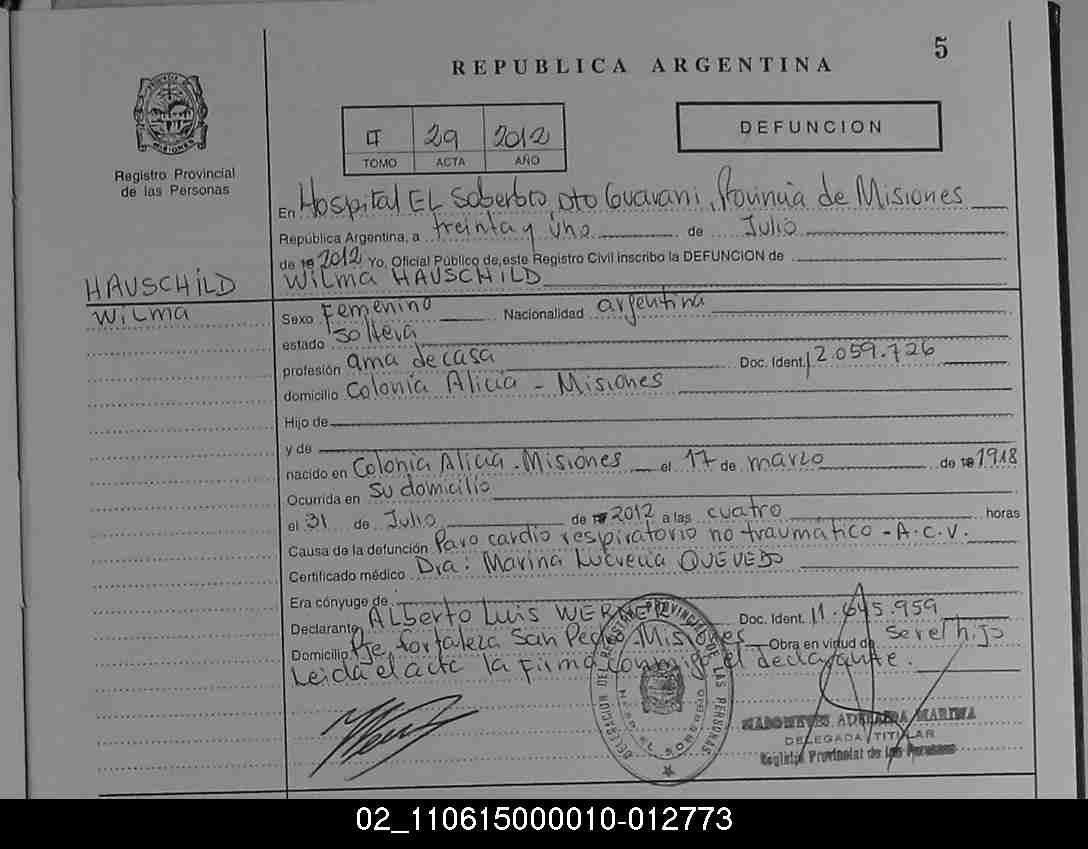 5
REPUBLICA ARGENTINA
29 2012
TOMO ACTA AÑO
DEFUNCION
MISIONES
Registro Provincial
de las Personas
En Hospital EL Soberbio, Dto Guarani, Provincia de Misiones
República Argentina, a treinta y uno de Julio
de 19 2012 Yo, Oficial Público de este Registro Civil inscribo la DEFUNCION de
HAUSCHILD
Wilma
Wilma HAUSCHILD
Sexo Femenino Nacionalidad argentina
estado soltera
profesión ama de casa Doc. Ident. 2.059.726
domicilio Colonia Alicia - Misiones
Hijo de
y de
nacido en Colonia Alicia - Misiones el 17 de marzo de 19 1918
Ocurrida en su domicilio
el 31 de Julio de 19 2012 a las cuatro horas
Causa de la defunción Paro cardio respiratorio no traumatico - A.C.V.
Certificado médico Dra: Marina Lucrecia QUEVEDO
Era cónyuge de
Declarante ALBerto Luis WERNER Doc. Ident. 11.645.959
Domicilio Pje fortaleza San Pedro Misiones Obra en virtud de ser el hijo
Leida el acta la firma conmigo el declarante.
DELEGACION DEL REGISTRO PROVINCIAL DE LAS PERSONAS
EL SOBERBIO
ADELAIDA MARINA
DELEGADA TITULAR
Registro Provincial de las Personas
02_110615000010-012773